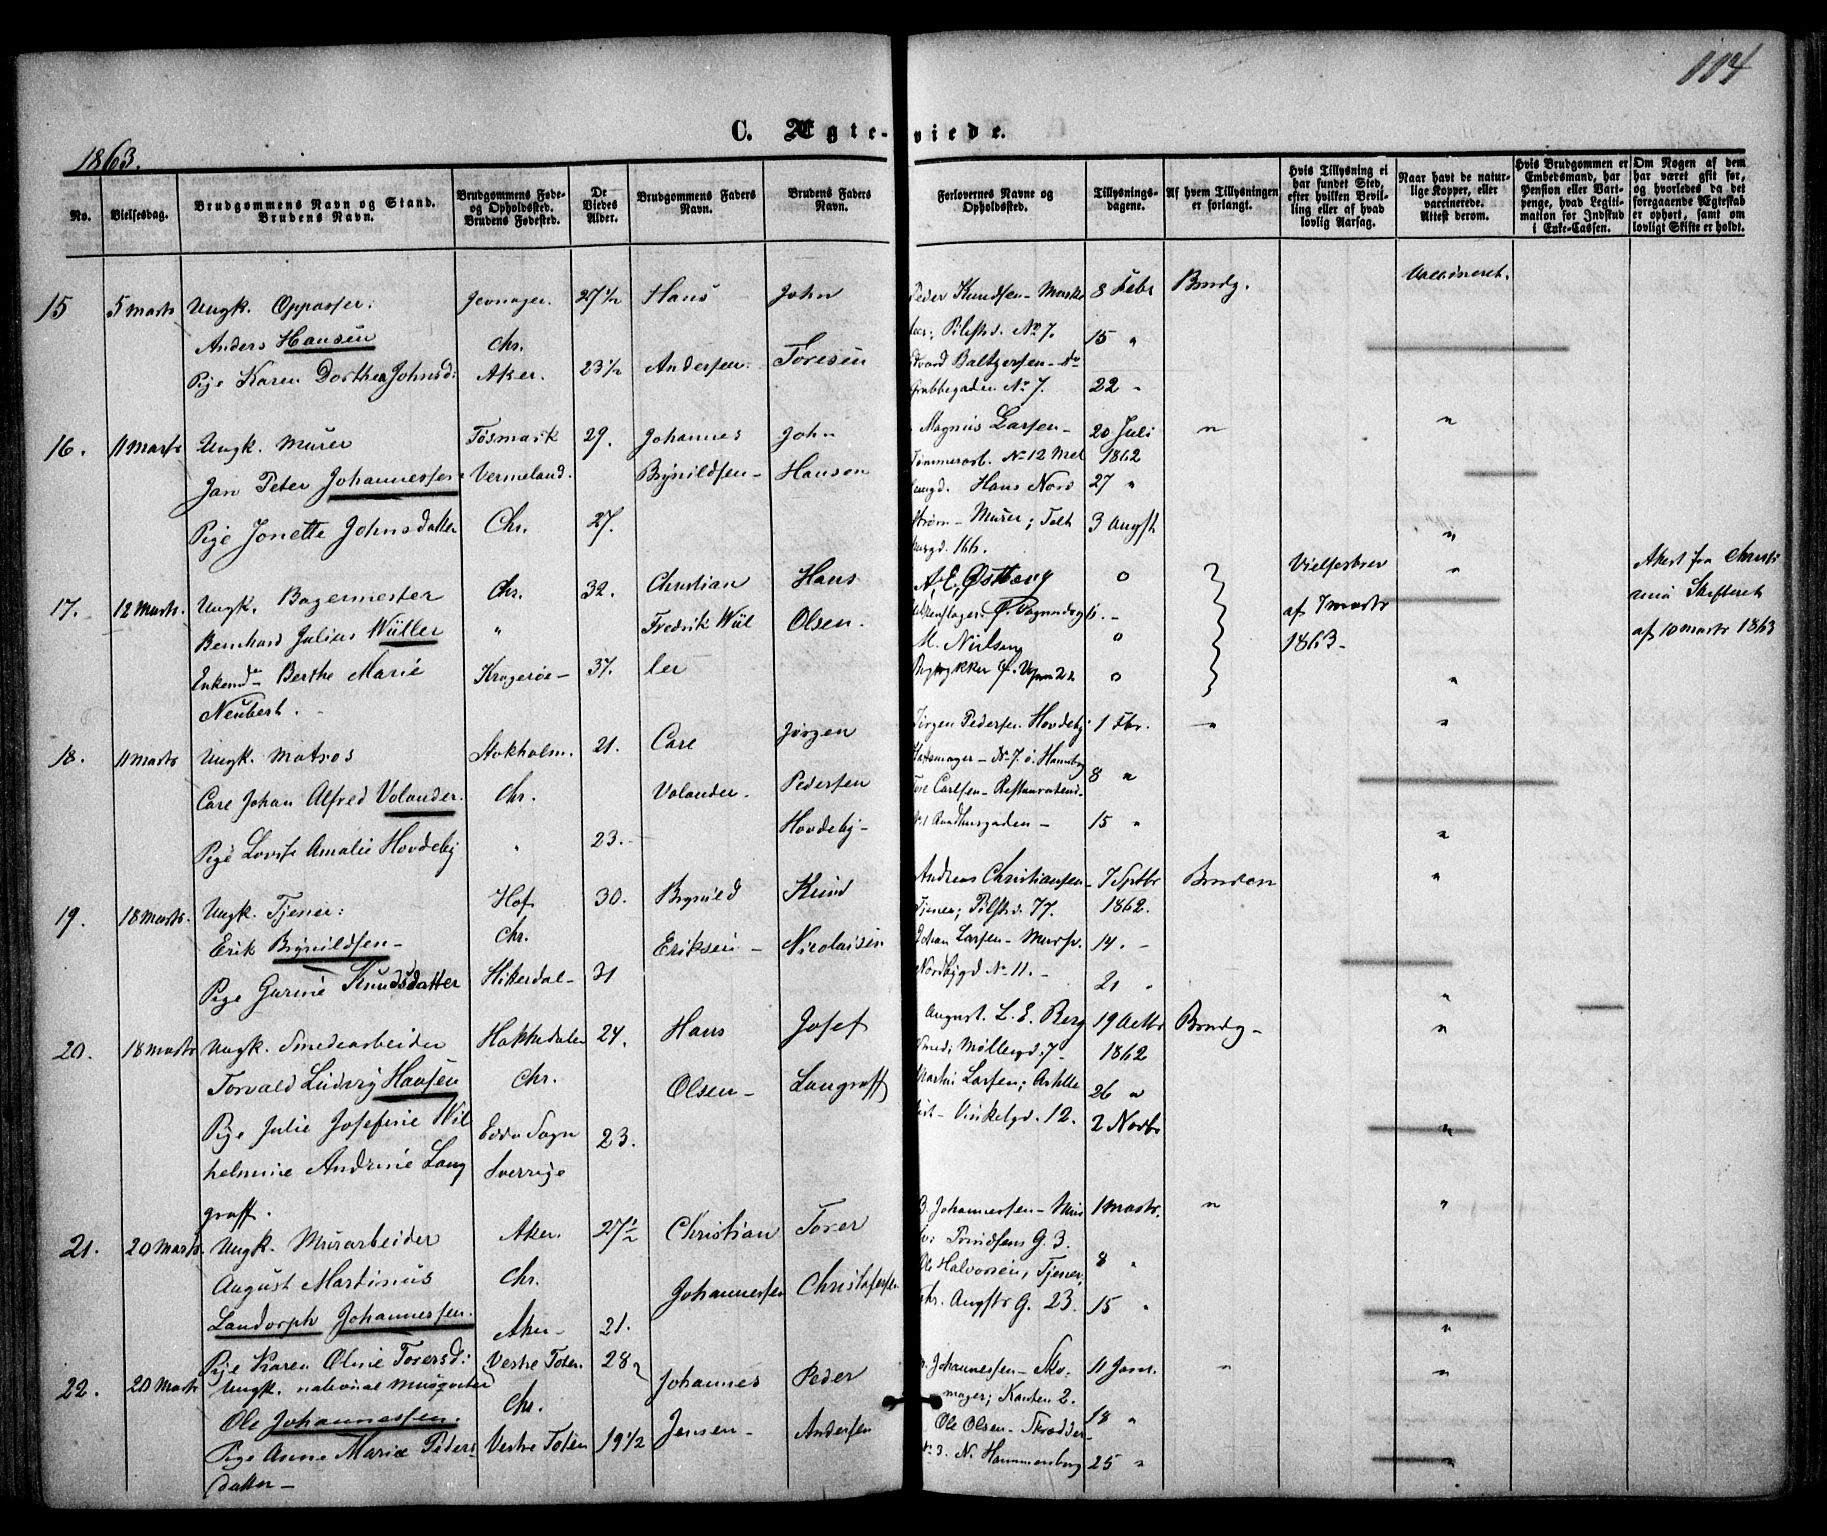 114
C. Ægte-viede.
1863.
No.
Vielsesdag.
Brudgommens Navn og Stand.
Brudens Navn.
Brudgommens Føde- og Opholdssted.
Brudens Fødested.
De Viedes Alder.
Brudgommens Faders Navn.
Brudens Faders Navn.
Forlovernes Navne og Opholdssted.
Tillysnings-dagene.
Af hvem Tillysningen er forlangt.
Hvis Tillysning ei har fundet Sted, efter hvilken Bevilling eller af hvad lovlig Aarsag.
Naar havt de naturlige Kopper, eller vaccinerede. Attest derom.
Hvis Brudgommen er Embedsmand, har Pension eller Vartpenge, hvad Legitimation for Indskud i Enke-Cassen.
Om Nogen af dem har været gift før, og hvorledes da det foregaaende Ægteskab er ophørt, samt om lovligt Skifte er holdt.
15 5 Marts Ungk. Oppasser: Jevnager. 27 1/2 Hans John Peder Knudsen 8 Febr Brudg. Vaccineret.
Anders Hansen Chr. Pilestd. No 7. 15 "
Pige Karen Dorthea Johnsd: Aker. 23 1/2 Andersen. Toresen Edvard Baltzersen - do
Grubbegaden No 7. 22 "
16. 11 Marts Ungk. Murer Tøsmark 29. Johannes John Magnus Larsen - 20 Juli " "
Jan Peter Johannessen Vermeland. Brynildsen - Hansen No 12 1862
Hans Nord 27 "
Pige Jonette Johnsdatter Chr. 27. strøm - Murer; 3 Augst "
166.
17. 12 Marts. Ungk. Bagermester Chr. 32. Christian Hans A. E. Østbøng o Vielsesbrev " Attest fra Christi
Bernhard Julius Wüller " Fredrik Wül Olsen. af 7 Marts ania Skifteret
M. Nielsen o 1863. af 10 Marts 1863
Enkemd- Berthe Marie Kragerøe - 37. ler o "
Neubert. -
18. 11 Marts Ungk. Matros Stokholm. 21. Carl Jørgen Jørgen Pedersen Hovdeby 1 Fbr. " "
Carl Johan Alfred Volander. Chr. Volander. Pedersen No 7. 8 "
Tore Carlsen - Restaurationsd-
Pige Lovise Amalie Hovdeby " 23. Hovdeby - Raadhusgaden - 15 " "
19. 18 Marts. Ungk. Tjener: Hof 30. Brynild Knud Andreas Christiansen - 7 Sptbr Bruden "
Tjener; Pilestd. 77. 1862.
Erik Brynildsen - Chr. Eriksen - Nicolaisen Johan Larsen - 14. -
Pige Gurine Knudsdatter Hiterdal - 31 No 11. - 21 " "
20. 18 Marts Ungk. Smedearbeider Hakkedalen 24. Hans Josef August. L. E. Berg 19 Octbr Brudg - "
Smed; Møllergd. 7 - 1862
Torvald Ludvig Hansen Chr. Olsen - Langraff Martin Larsen; 26 "
Pige Julie Josefine Wil Edda Sogn 23. Vinkelgd. 12. 2 Novbr "
helmine Andrine Lang Sverrige
graff.
21. 20 Marts. Ungk. Murarbeider Aker. 27 1/2 Christian Torer Johannessen - Mur 1 Marts. " "
G. 3.
August Martinius Chr. Johannessen Christofersen Ole Halvorsen, Tjener, 8 "
Landorph Johannessen. G. 23. 15 "
Pige Karen Oline Torersd: Aker - 21. "
22. 20 Marts Ungk. national Musqueter Vestre Toten. 28 Johannes Peder Johannessen - Sko- 11 Janr. " "
mager; Kanten 2.
Ole Johannessen. Chr. Jensen - Andersen Ole Olsen - Skrædder - 18 "
Pige Anne Marie Peders Vestre Toten 19 1/2 No 3. N. Hammersborg 25 " "
datter -